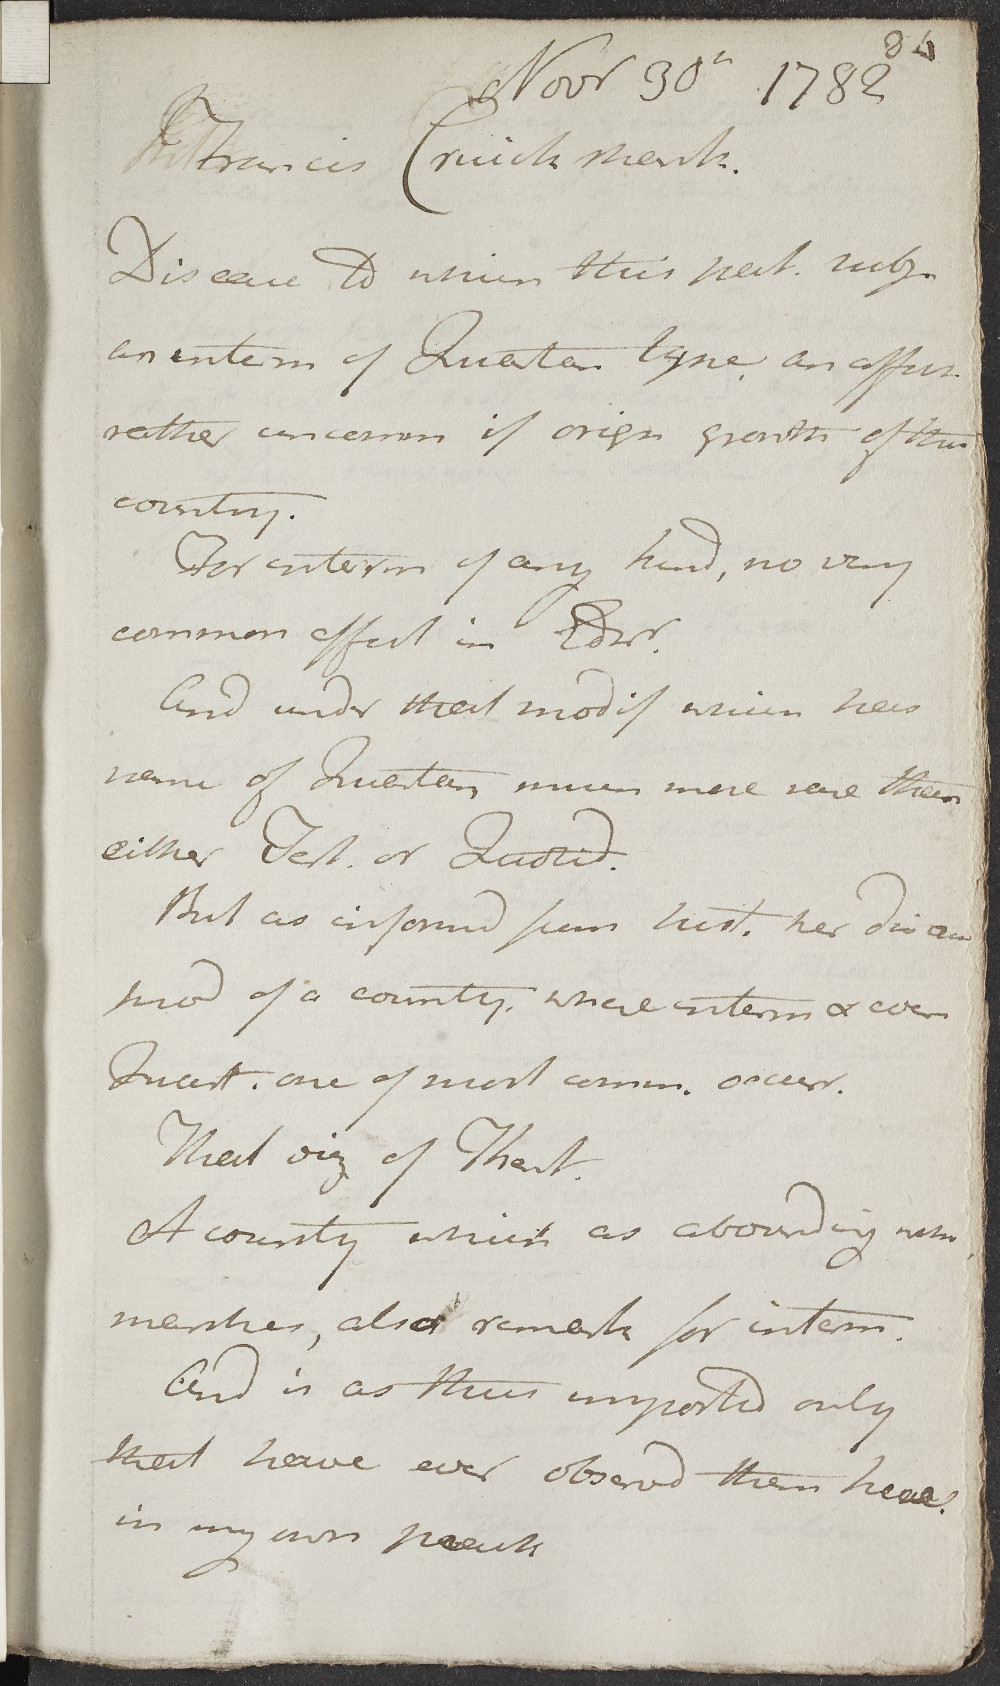 84
Novr 30th 1782
Francis Cruickshank.
Disease to which this pat. subj.
an interm of Quartan type, an affect
rather uncomm if origin growth of this
country.
For interm of any kind, no very
common affect in Edinr.
And under that modif which has
name of Quartan, much more rare than
either Tert. or Quotid.
But as informd from hist. her disease
prod of a country, where interm & even
Quart. one of most comm. occurr.
That viz of
A county which as abounding with
marshes, also remark for interm.
And is as thus imported only
that have ever observd them here.
in my own pract